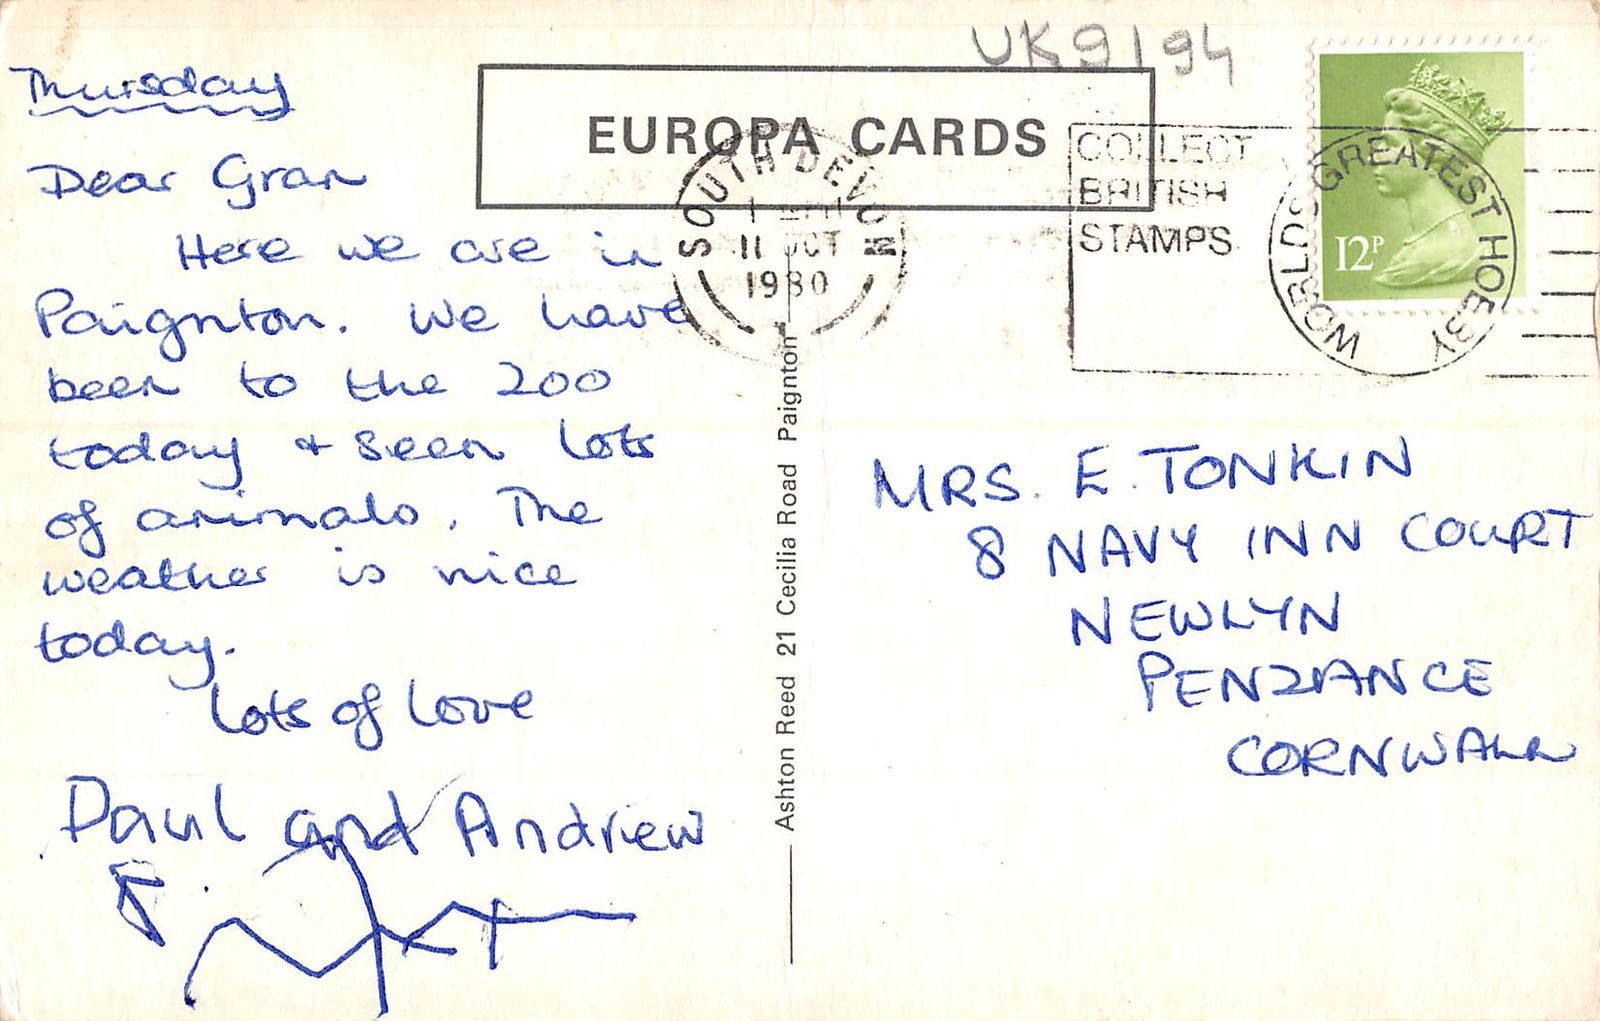 UK9194
EUROPA CARDS
Thursday
Dear Gran
Here we are in
Paignton. We have
been to the zoo
today + seen lots
of animals. The
weather is nice
today.
Lots of love
Paul and Andrew
SOUTH DEVON
11 OCT
1980
COLLECT
BRITISH
STAMPS
WORLDS GREATEST HOBBY
12P
Ashton Reed 21 Cecilia Road Paignton
MRS. E. TONKIN
8 NAVY INN COURT
NEWLYN
PENZANCE
CORNWALL